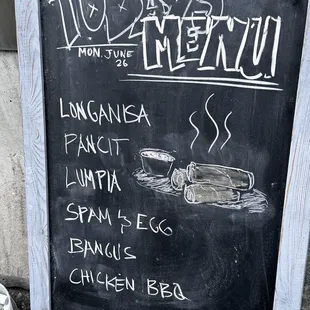 TODAY'S
MENU
MON. JUNE
26
LONGANISA
PANCIT
LUMPIA
SPAM & EGG
BANGUS
CHICKEN BBQ